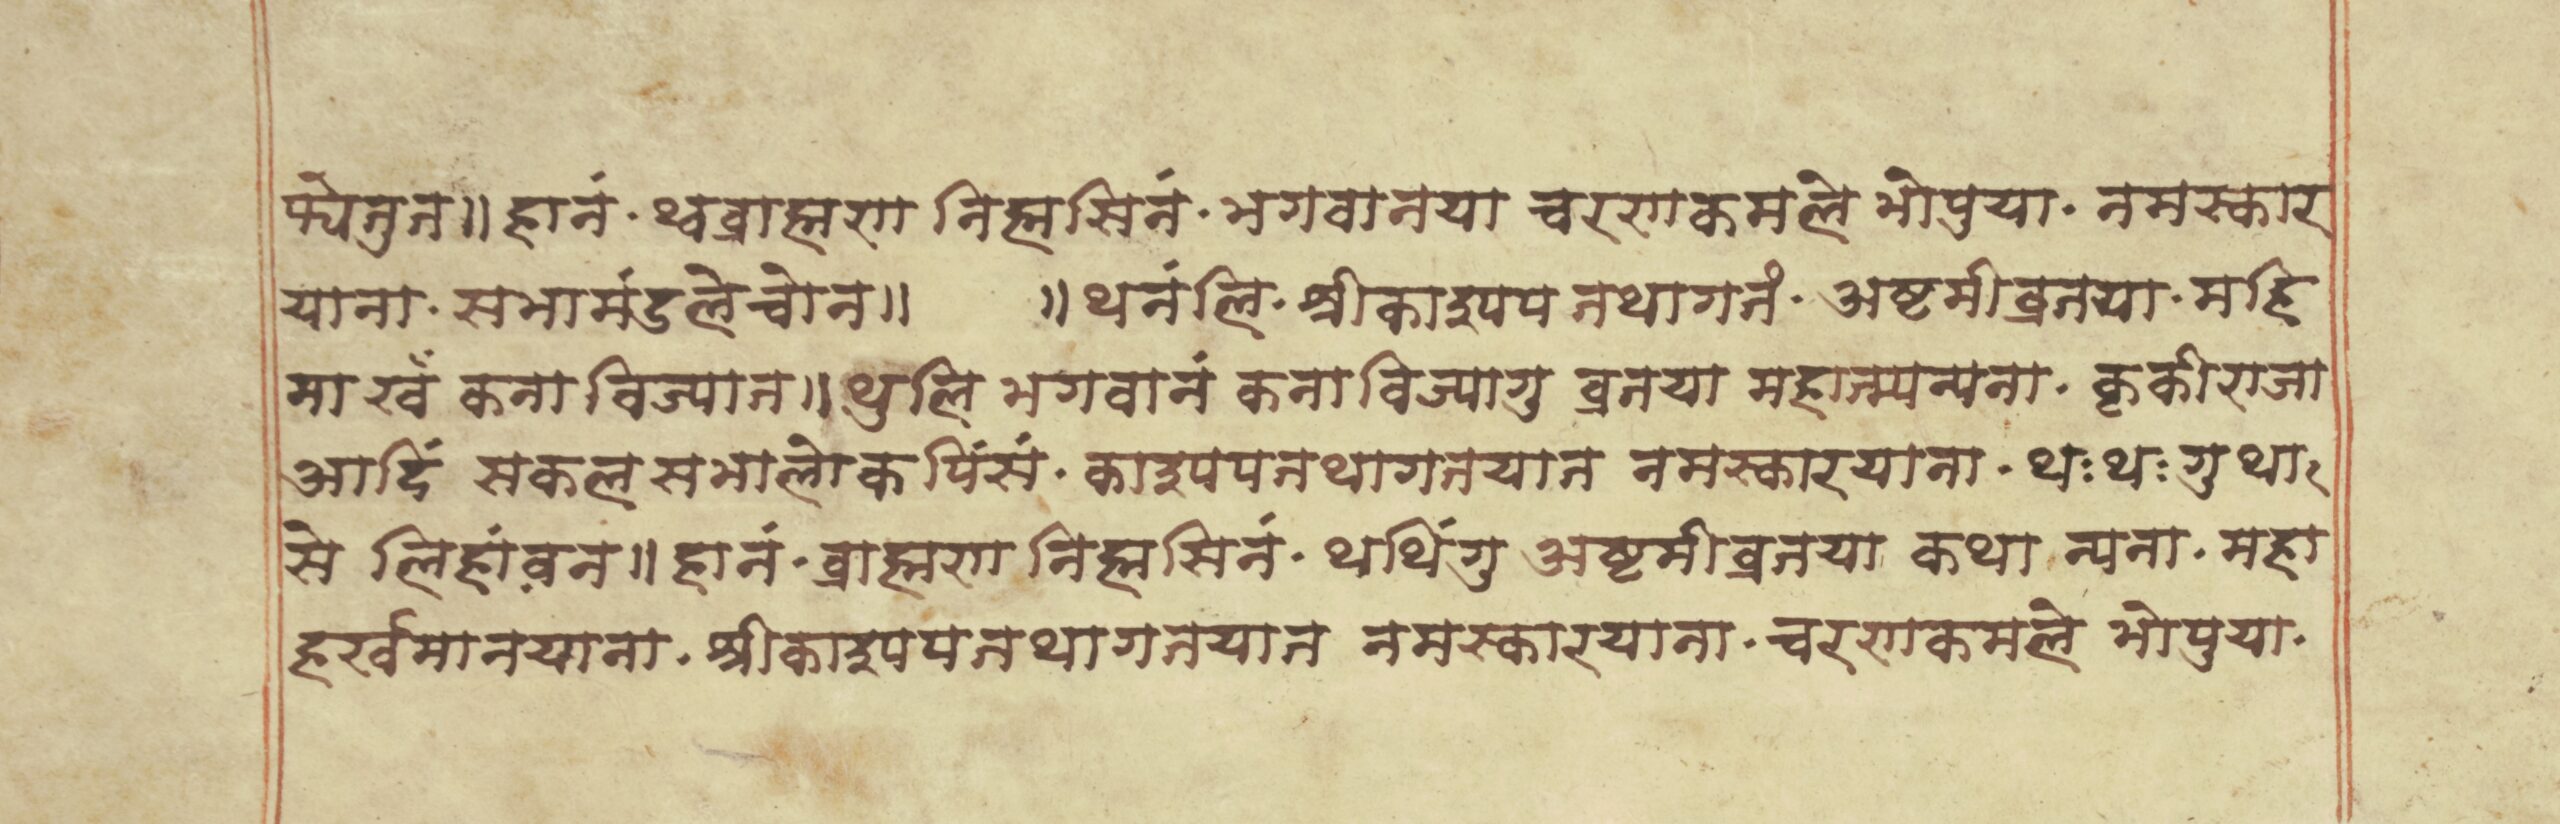 र्फ्येतुन॥ हानं· थ्वब्राह्मण निह्मसिनं· भगवानया चरणकमले भोपुया· नमस्कार
याना· सभामंडलेचोन॥ ॥ थनंलि· श्रीकाश्यपतथागतं· अष्टमीव्रतया· महि
मा खँ कना विज्यात॥ थुलि भगवानं कनाविज्यागु व्रतया महात्म्यन्यना· कृकीराजा
आदिं सकलसभालोकपिंसं· काश्यपतथागतयात नमस्कारयाना· थःथःगु थाः
से लिहांव़न॥ हानं· ब्राह्मण निह्मसिनं· थथिंगु अष्टमीव्रतया कथा न्यना· महा
हर्खमानयाना· श्रीकाश्यपतथागतयात नमस्कारयाना· चरणकमले भोपुया·